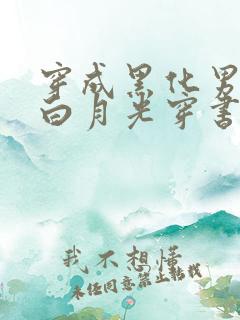 穿成黑化男
白月光穿书
我不想懂
未经同意禁止转载